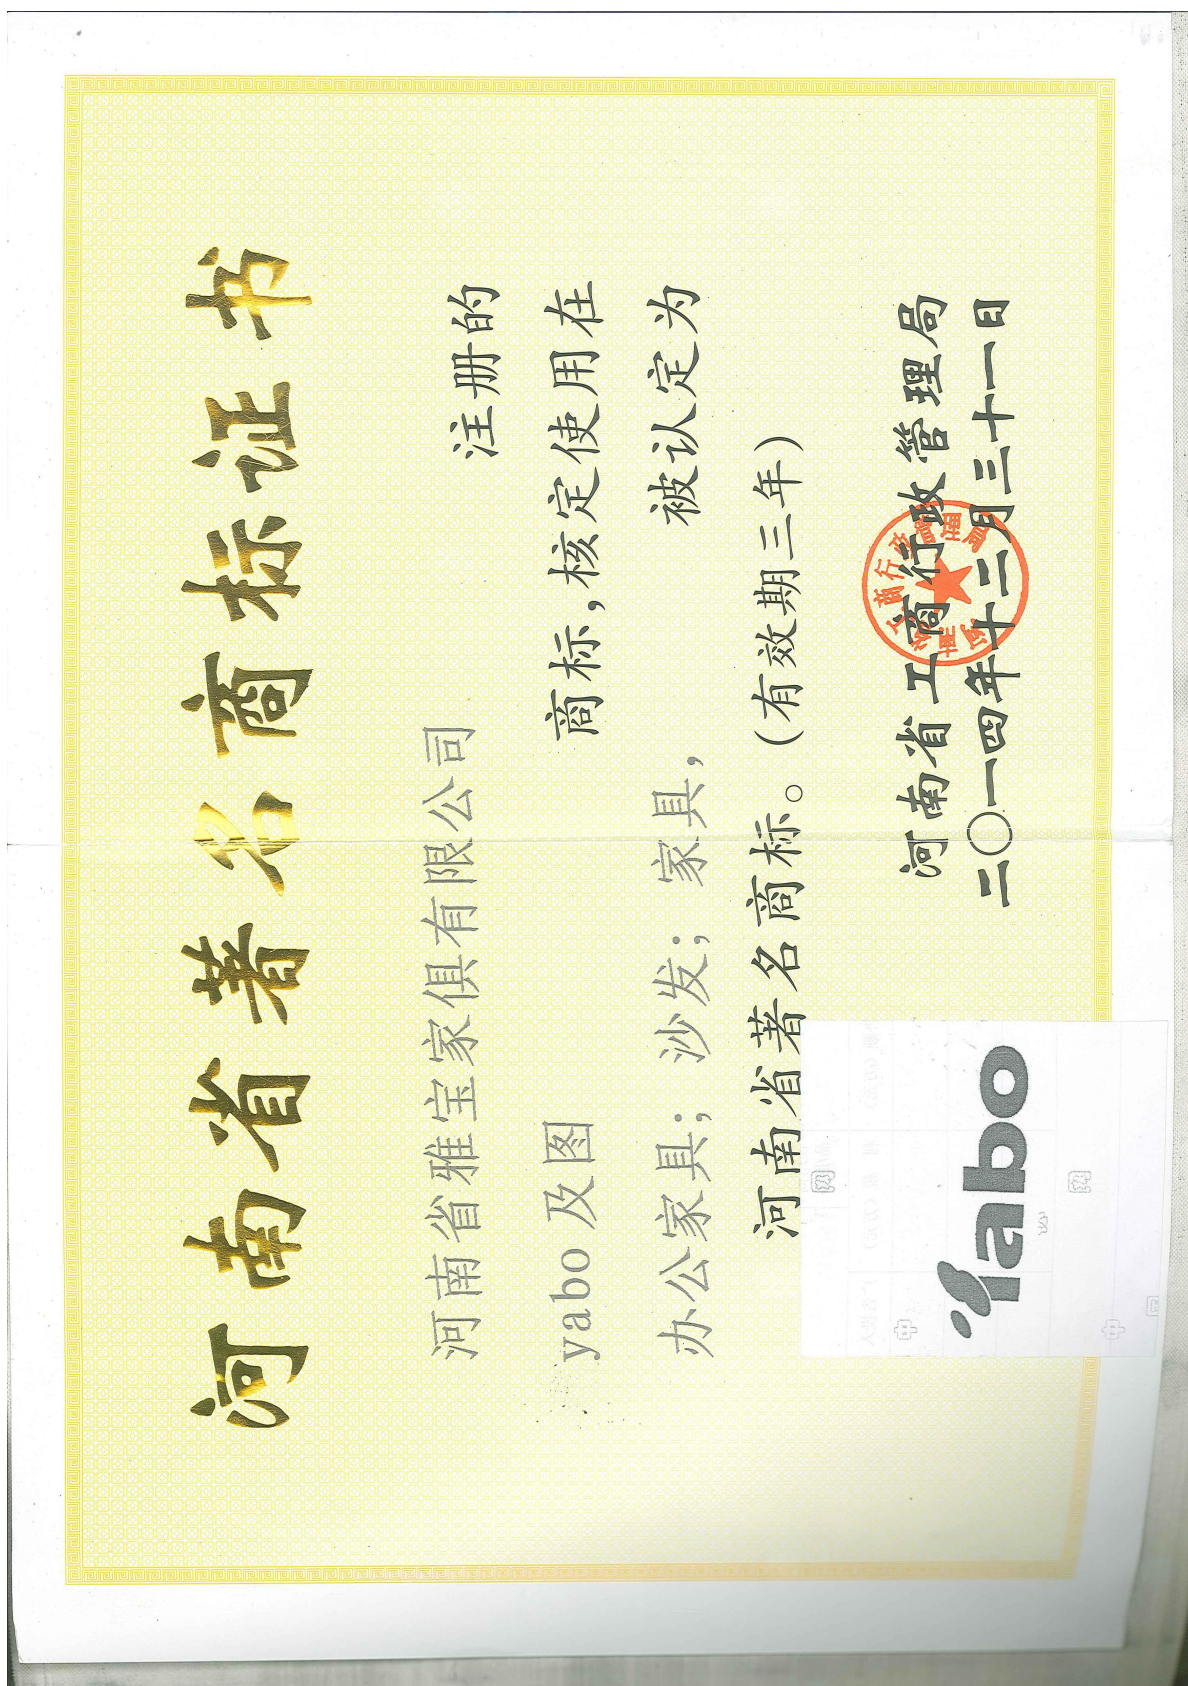 河南省著名商标证书
河南省雅宝家俱有限公司 注册的
yabo 及图 商标,核定使用在
办公家具；沙发；家具， 被认定为
河南省著名商标。(有效期三年)
河南省工商行政管理局
二〇一四年十二月三十一日
河南省工商行政管理局
yabo